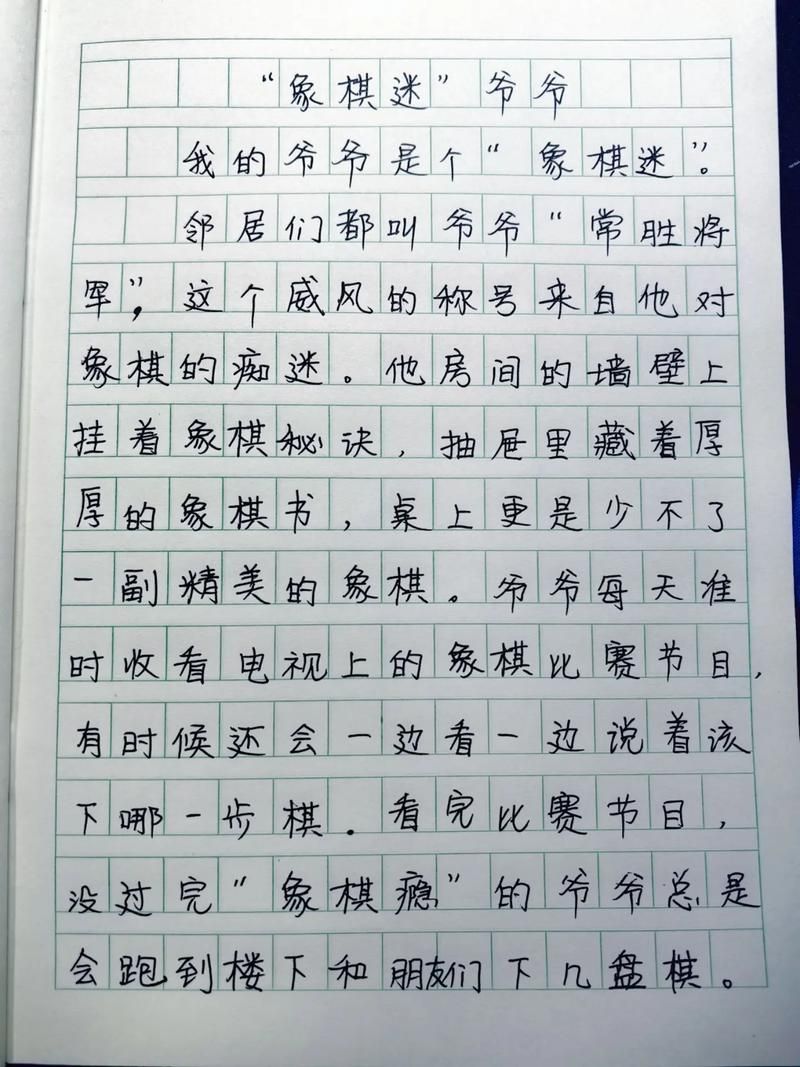 “象棋迷”爷爷
我的爷爷是个“象棋迷”。
邻居们都叫爷爷“常胜将
军”，这个威风的称号来自他对
象棋的痴迷。他房间的墙壁上
挂着象棋秘诀，抽屉里藏着厚
厚的象棋书，桌上更是少不了
一副精美的象棋。爷爷每天准
时收看电视上的象棋比赛节目，
有时候还会一边看一边说着该
下哪一步棋。看完比赛节目，
没过完“象棋瘾”的爷爷总是
会跑到楼下和朋友们下几盘棋。